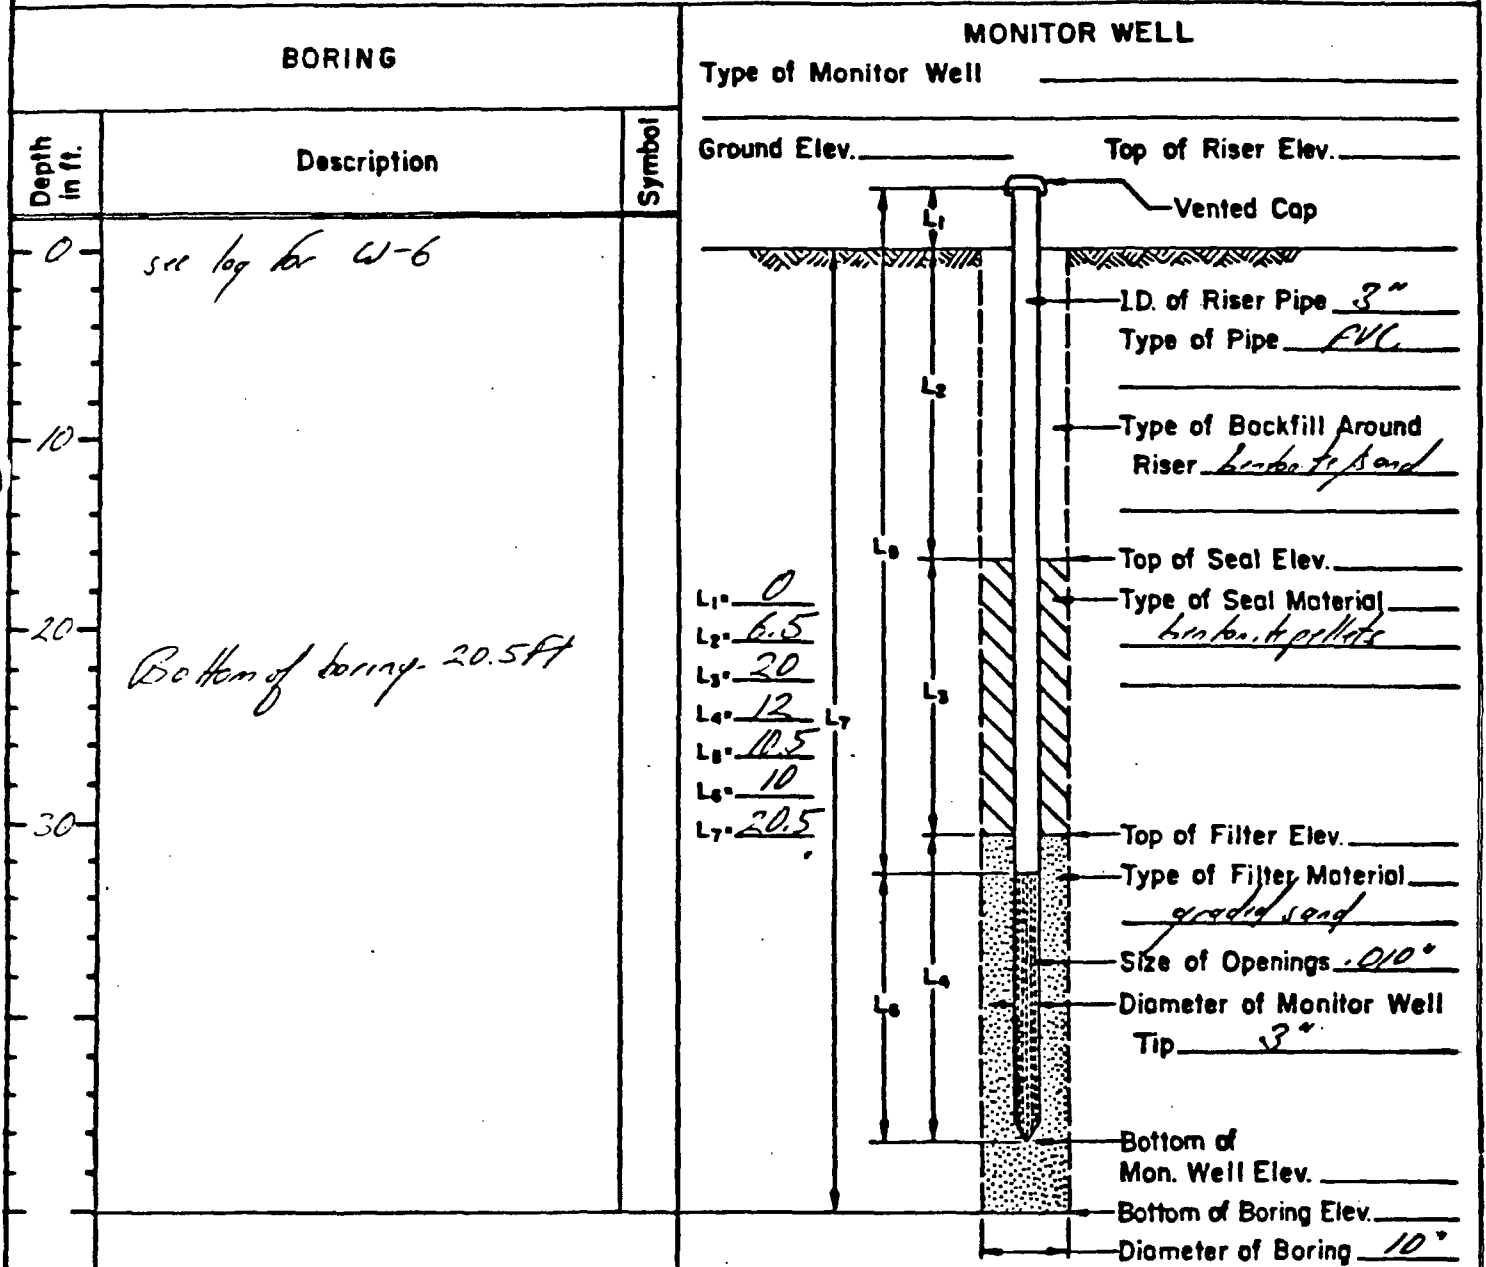 BORING
Depth in ft.
Description
Symbol
0
see log for W-6
10
20
Bottom of boring - 20.5 ft
30
MONITOR WELL
Type of Monitor Well
Ground Elev.
Top of Riser Elev.
Vented Cap
L1
I.D. of Riser Pipe 3"
Type of Pipe PVC
L2
Type of Backfill Around
Riser bentonite/sand
L5
Top of Seal Elev.
Type of Seal Material
bentonite pellets
L1= 0
L2= 6.5
L3= 20
L4= 12
L5= 10.5
L6= 10
L7= 20.5
L3
L7
Top of Filter Elev.
Type of Filter Material
graded sand
Size of Openings .010"
L4
L6
Diameter of Monitor Well
Tip 3"
Bottom of
Mon. Well Elev.
Bottom of Boring Elev.
Diameter of Boring 10"